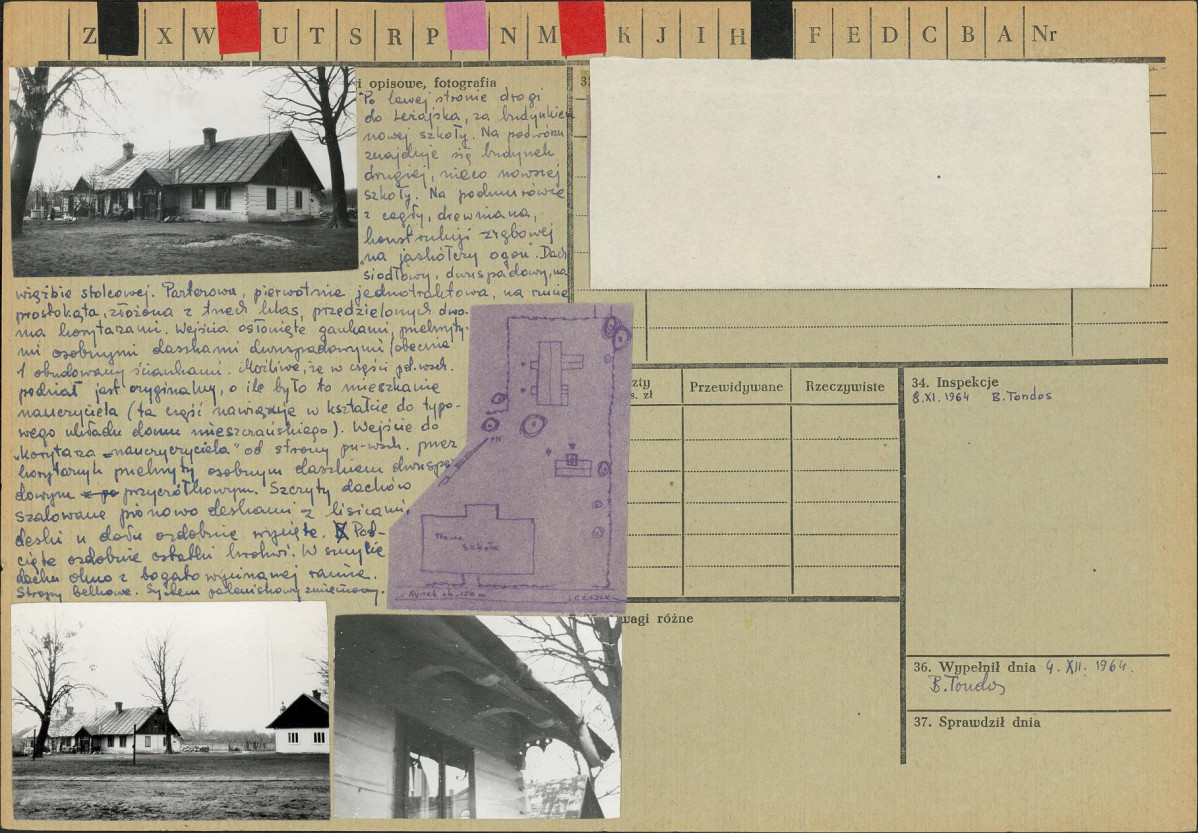 Z X W U T S R P N M K J I H F E D C B A Nr
i opisowe, fotografia
Po lewej stronie drogi
do Leżajska, za budynkiem
nowej szkoły. Na podwórzu
znajduje się budynek
drugiej, nieco nowszej
szkoły. Na podmurówce
z cegły, drewniana,
konstrukcji zrębowej
"na jaskółczy ogon". Dach
siodłowy, dwuspadowy, na
więźbie stolcowej. Parterowa, pierwotnie jednotraktowa, na rzucie
prostokąta, złożona z trzech klas, przedzielonych dwo-
ma korytarzami. Wejścia osłonięte gankami, przekryty-
mi osobnymi daszkami dwuspadowymi /obecnie
1 obudowany ściankami. Możliwe, że w części płd. wsch.
podział jest oryginalny, o ile było to mieszkanie
nauczyciela (ta część nawiązuje w kształcie do typo-
wego układu domu mieszczańskiego). Wejście do
"korytarza "nauczyciela" od strony pn-wsch. przez
korytarzyk przekryty osobnym daszkiem dwuspa-
dowym przyczółkowym. Szczyty dachów
szalowane pionowo deskami z lisicami,
deski u dołu ozdobnie wycięte. Pod-
cięte ozdobnie ostatki krokwi. W szczycie
dachu okno z bogato wycinanej ramie.
Stropy belkowe. System paleniskowy zmieniony.
Nowa
szkoła
Rynek ok. 150 m
LEŻAJSK
zty
s. zł
Przewidywane
Rzeczywiste
34. Inspekcje
8.XI. 1964 B. Tondos
wagi różne
36. Wypełnił dnia 4. XII. 1964.
B. Tondos
37. Sprawdził dnia